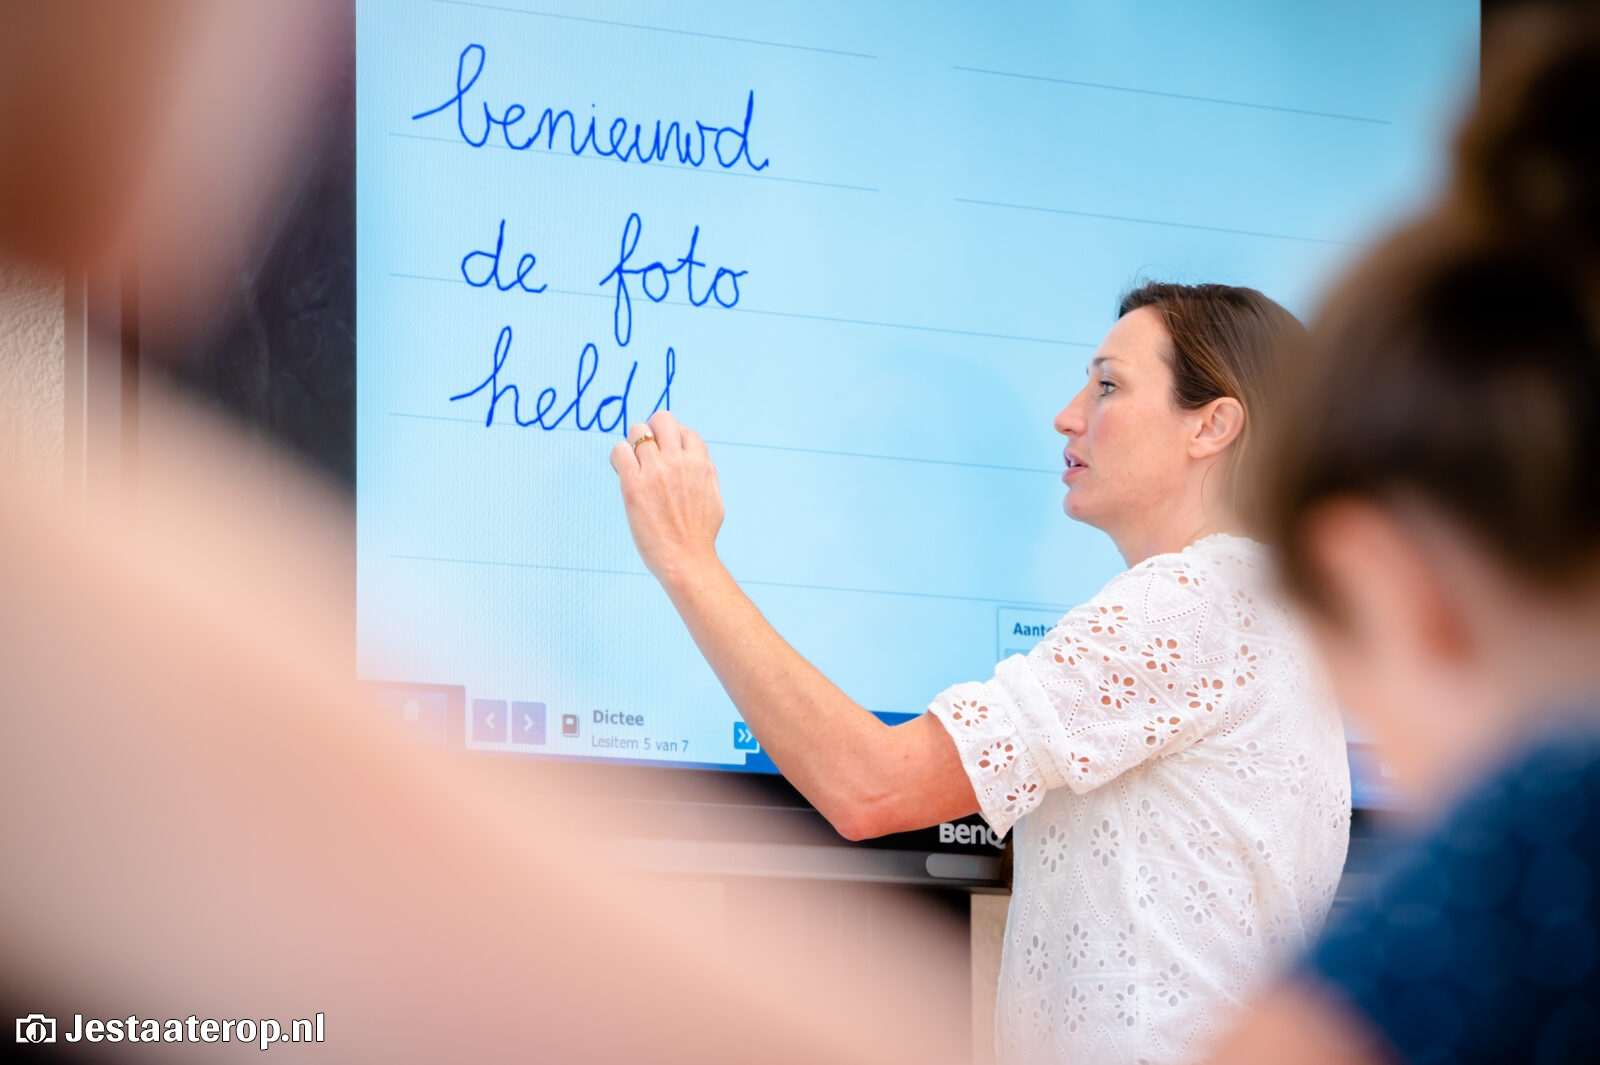 benieuwd
de foto
held
Aant
Dictee
Lesitem 5 van 7
BenQ
Jestaaterop.nl